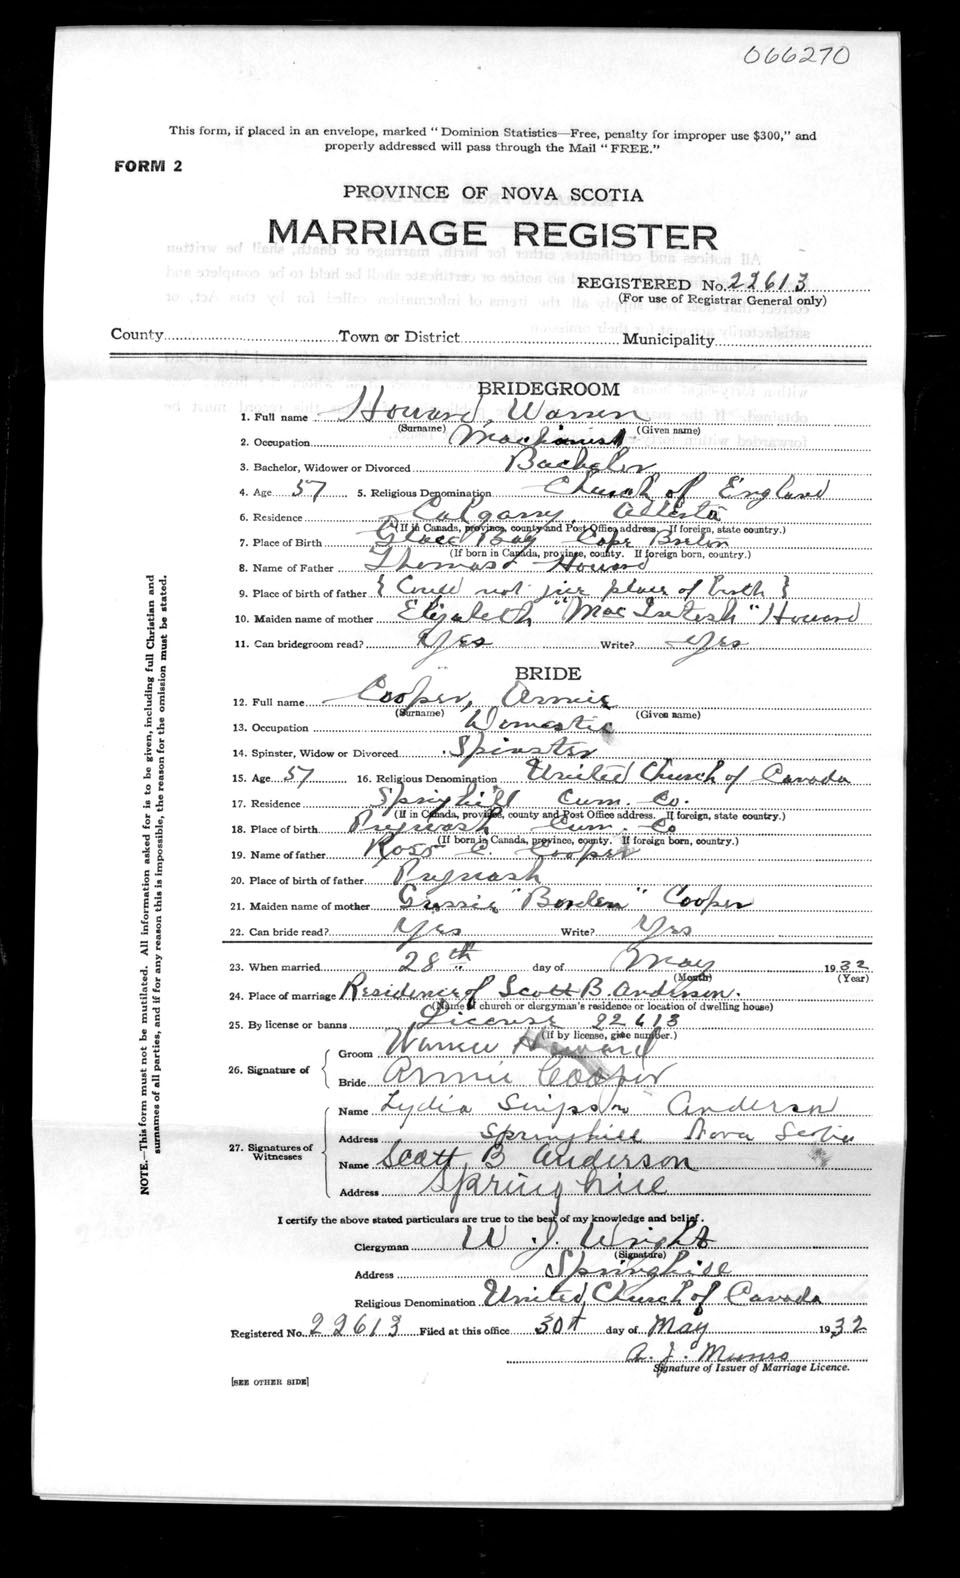 066270
This form, if placed in an envelope, marked "Dominion Statistics—Free, penalty for improper use $300," and
properly addressed will pass through the Mail "FREE."
FORM 2
PROVINCE OF NOVA SCOTIA
MARRIAGE REGISTER
REGISTERED No. 22613
(For use of Registrar General only)
County Town or District Municipality
BRIDEGROOM
1. Full name Howard, Warren
(Surname) (Given name)
2. Occupation Machinist
3. Bachelor, Widower or Divorced Bachelor
4. Age 57 5. Religious Denomination Church of England
6. Residence Calgary Alberta
(If in Canada, province, county and Post Office address. If foreign, state country.)
7. Place of Birth Glace Bay Cape Breton
(If born in Canada, province, county. If foreign born, country.)
8. Name of Father Thomas Howard
9. Place of birth of father {Could not give place of birth}
10. Maiden name of mother Elizabeth "MacIntosh" Howard
11. Can bridegroom read? Yes Write? Yes
BRIDE
12. Full name Cooper, Annie
(Surname) (Given name)
13. Occupation Domestic
14. Spinster, Widow or Divorced Spinster
15. Age 57 16. Religious Denomination United Church of Canada
17. Residence Springhill Cum. Co.
(If in Canada, province, county and Post Office address. If foreign, state country.)
18. Place of birth Pugwash Cum. Co
(If born in Canada, province, county. If foreign born, country.)
19. Name of father Ross C. Cooper
20. Place of birth of father Pugwash
21. Maiden name of mother Gussie "Borden" Cooper
22. Can bride read? Yes Write? Yes
23. When married 28th day of May 1932
(Month) (Year)
24. Place of marriage Residence of Scott B. Anderson.
(Name of church or clergyman's residence or location of dwelling house)
25. By license or banns License 22613
(If by license, give number.)
26. Signature of
Groom Warren Howard
Bride Annie Cooper
27. Signatures of Witnesses
Name Lydia Simpson Anderson
Address Springhill Nova Scotia
Name Scott B Anderson
Address Springhill
I certify the above stated particulars are true to the best of my knowledge and belief.
Clergyman W. J. Wright
(Signature)
Address Springhill
Religious Denomination United Church of Canada
Registered No. 22613 Filed at this office 30th day of May 1932
A. J. Munro
Signature of Issuer of Marriage Licence.
[SEE OTHER SIDE]
NOTE.—This form must not be mutilated. All information asked for is to be given, including full Christian and
surnames of all parties, and if for any reason this is impossible, the reason for the omission must be stated.